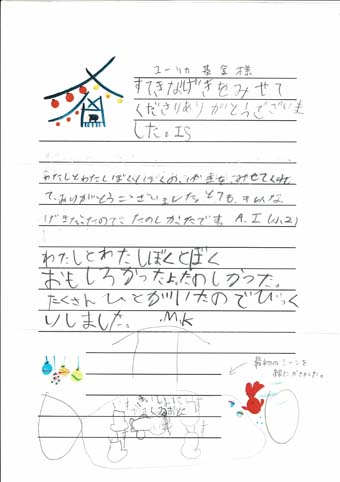 ユーリカ 基金 様
すてきなげきをみせて
くださりありがとうございま
した。IS
わたしとわたしぼくとぼくの、げきを、みせてくれ
て、ありがとうございました。とても、きれいな
げきだったので、たのしかったです A.I
わたしとわたしぼくとぼく
おもしろかったよ。たのしかった。
たくさん ひとがいたのでびっく
りしました。 .M.K
最初のシーンを
絵にかきました。